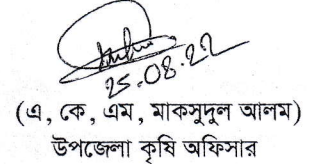 25.08.22
(এ, কে, এম, মাকসুদুল আলম)
উপজেলা কৃষি অফিসার